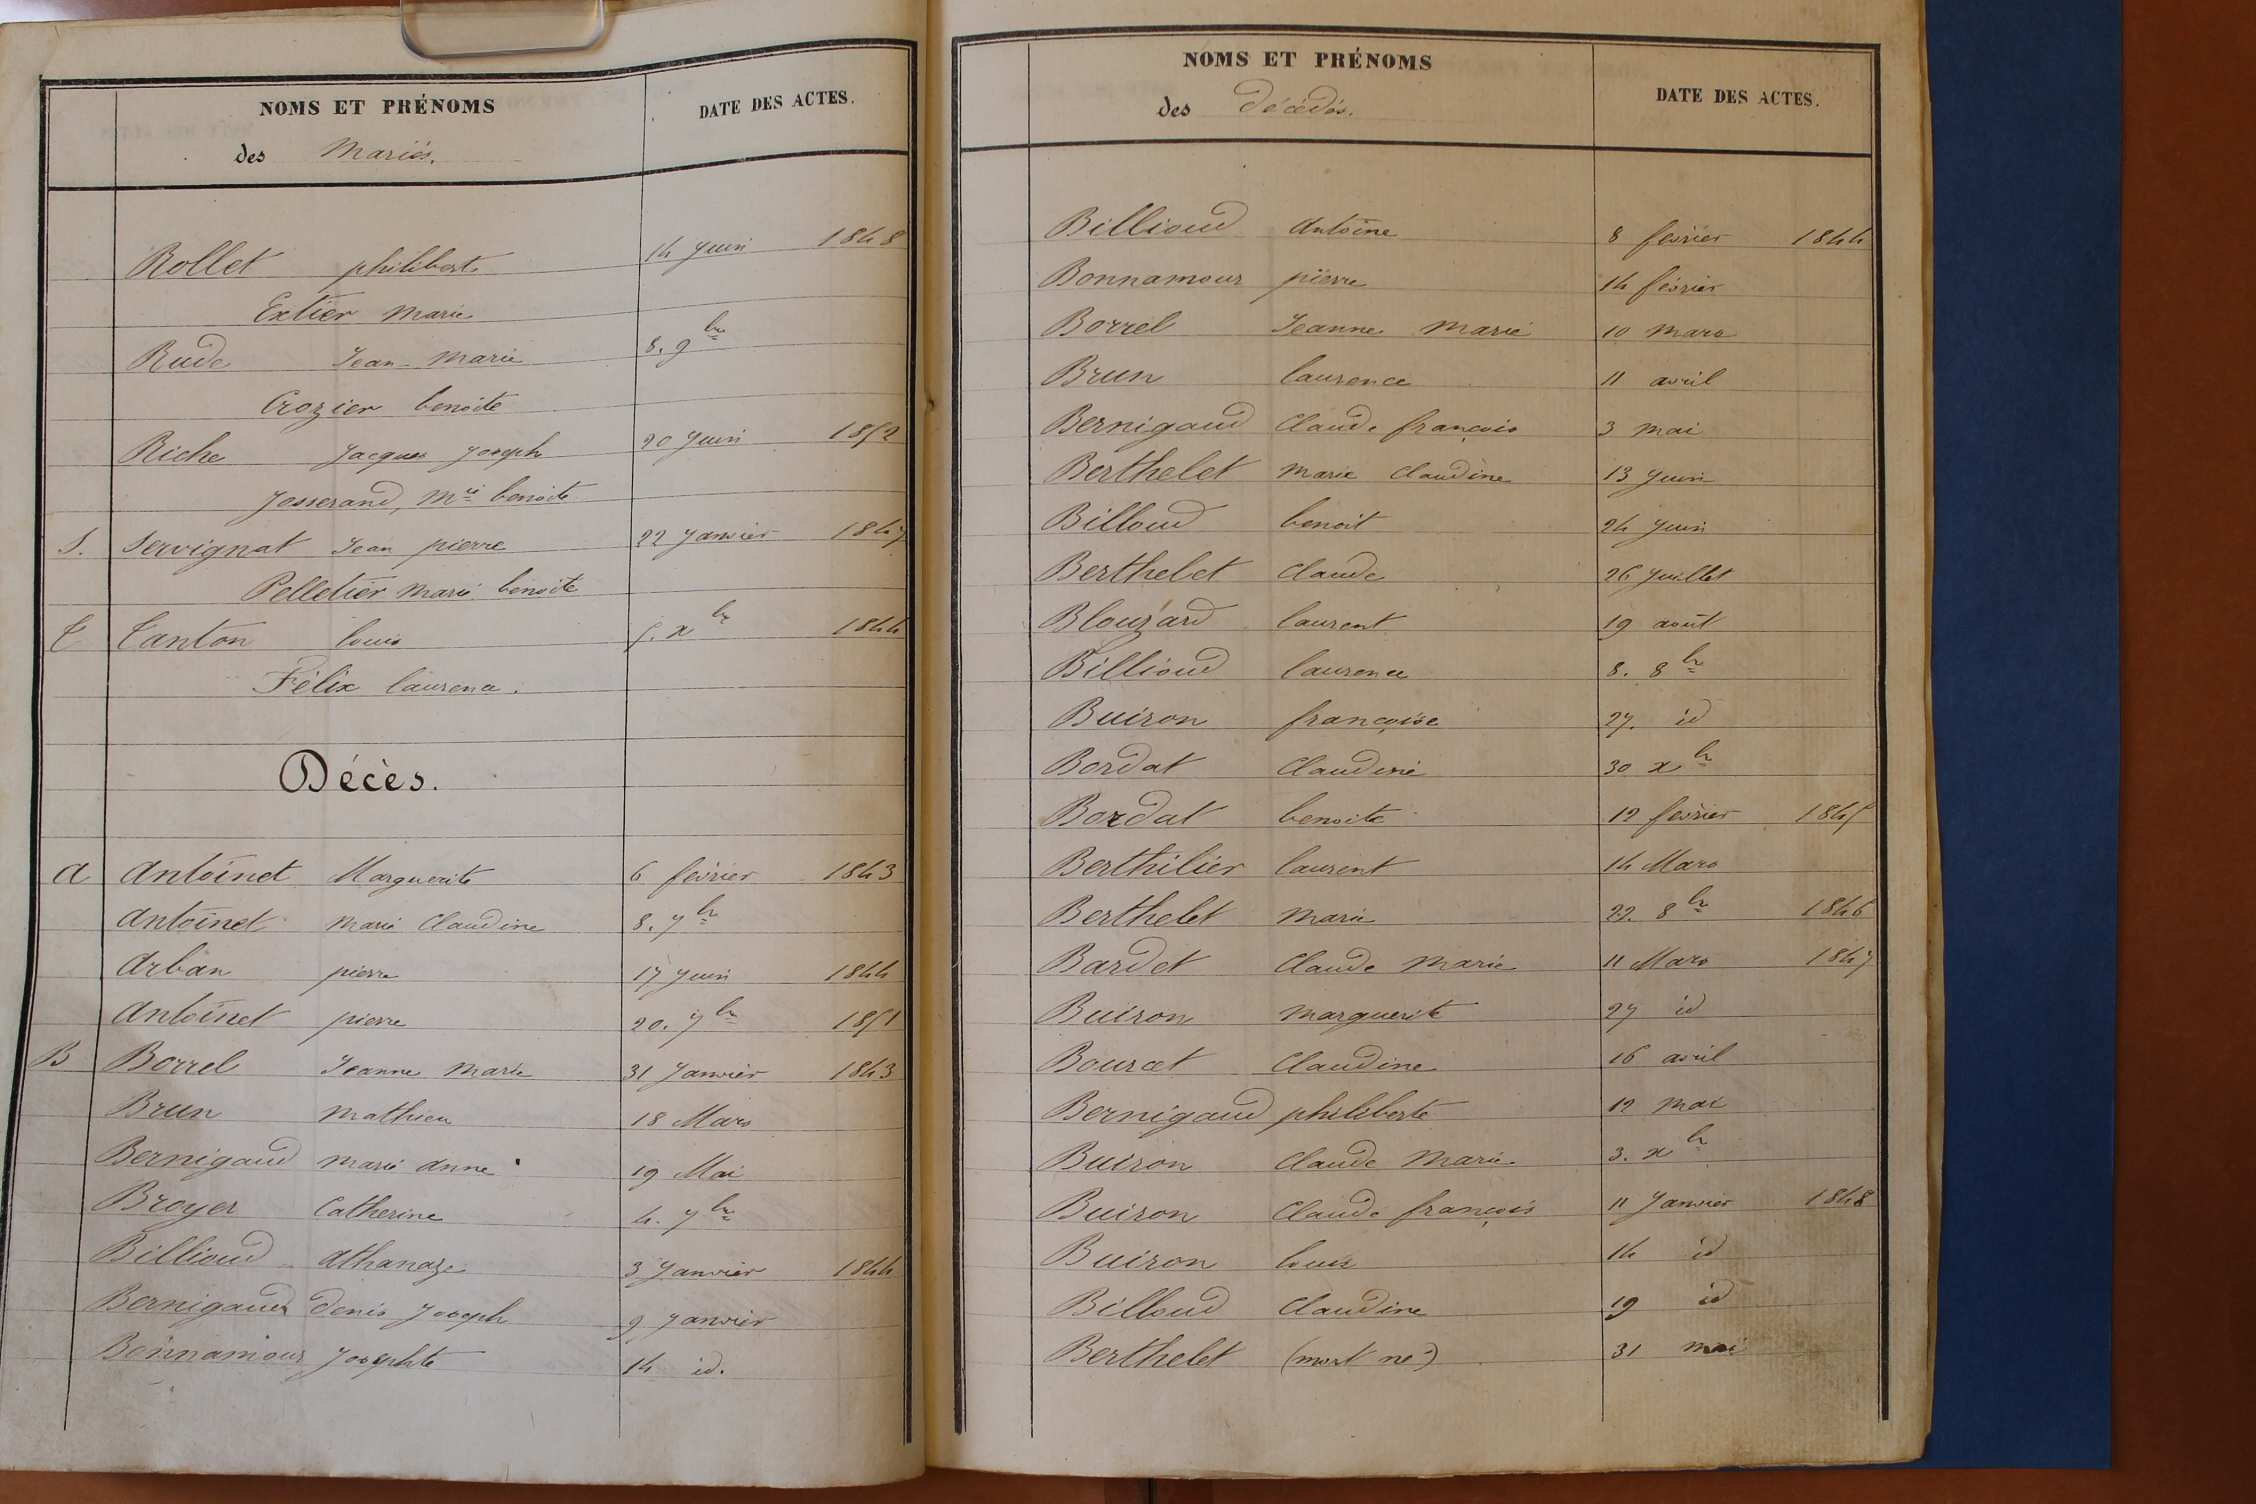 NOMS ET PRÉNOMS
des Mariés.
DATE DES ACTES.
Rollet philibert 14 Juin 1848
Extier Marie
Rude Jean-Marie 8. 9bre
Crozier benoite
Riche Jacques Joseph 20 Juin 1852
Josserand, Mie benoite
S. Servignat Jean pierre 22 Janvier 1847
Pelletier Marie benoite
T Tanton louis 5. xbre 1844
Félix laurence.
Décès.
A Antoinet Marguerite 6 février 1843
Antoinet Marie Claudine 8. 7bre
Arban pierre 17 Juin 1844
Antoinet pierre 20. 7bre 1851
B Borrel Jeanne Marie 31 Janvier 1843
Brun Mathieu 18 Mars
Bernigaud Marie Anne 19 Mai
Broyer Catherine 4. 7bre
Billioud Athanaze 3 Janvier 1844
Bernigaud Denis Joseph 9 Janvier
Bonnamour Josephte 14 id.
NOMS ET PRÉNOMS
des Décédés.
DATE DES ACTES.
Billioud Antoine 8 février 1844
Bonnamour pierre 14 février
Borrel Jeanne Marie 10 Mars
Brun laurence 11 avril
Bernigaud Claude françois 3 Mai
Berthelet Marie Claudine 13 Juin
Billoud benoit 24 Juin
Berthelet Claude 26 Juillet
Blouzard laurent 19 août
Billioud laurence 8. 8bre
Buiron françoise 27. id
Bordat Claudine 30 xbre
Bordat benoite 12 février 1845
Berthilier laurent 14 Mars
Berthelet Marie 22. 8bre 1846
Bardet Claude Marie 11 Mars 1847
Buiron Marguerite 27 id
Bourcet Claudine 16 avril
Bernigaud philiberte 12 Mai
Buiron Claude Marie 3. xbre
Buiron Claude françois 11 Janvier 1848
Buiron louis 14 id
Billoud Claudine 19 id
Berthelet (mort né) 31 mai